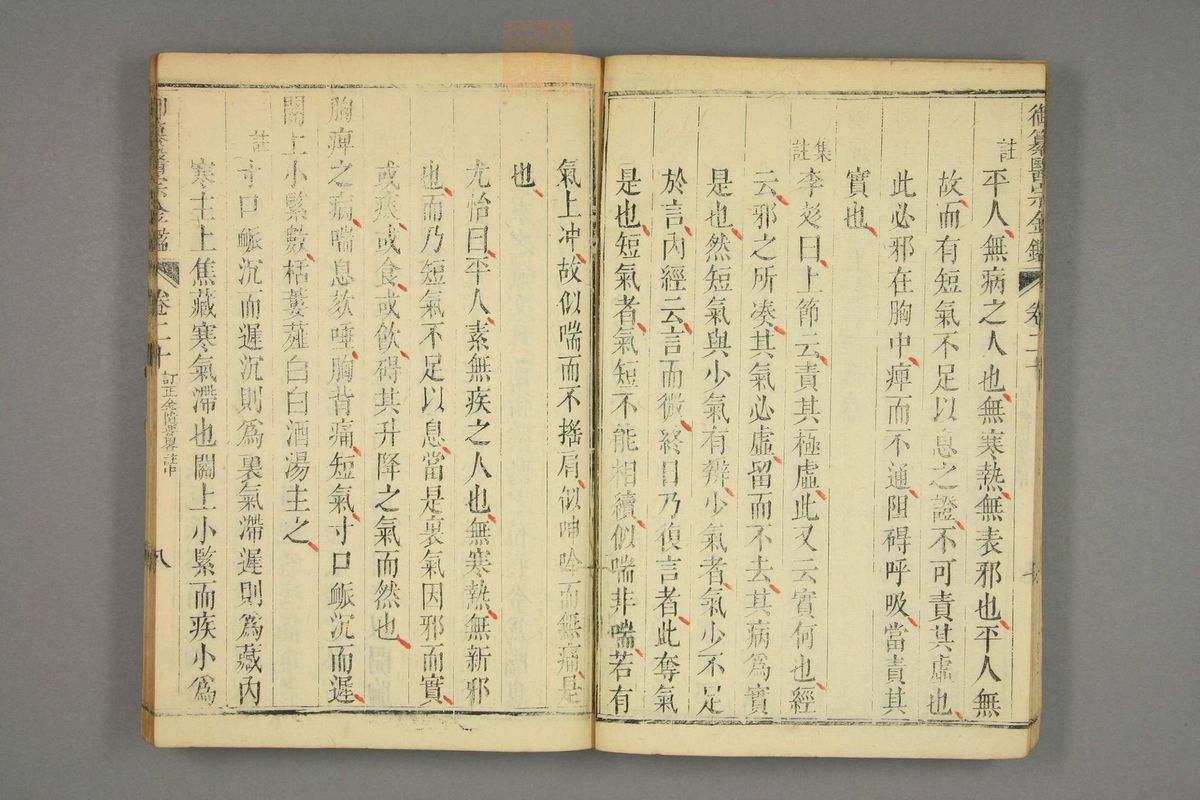 御纂醫宗金鑑 卷二十 七
註平人無病之人也無寒熱無表邪也平人無
故而有短氣不足以息之證不可責其虛也
此必邪在胸中痺而不通阻碍呼吸當責其
實也
集註李彣曰上節云責其極虛此又云實何也經
云邪之所湊其氣必虛留而不去其病爲實
是也然短氣與少氣有辨少氣者氣少不足
於言內經云言而微終日乃復言者此奪氣
是也短氣者氣短不能相續似喘非喘若有
氣上冲故似喘而不搖肩似呻吟而無痛是
也
尤怡曰平人素無疾之人也無寒熱無新邪
也而乃短氣不足以息當是裏氣因邪而實
或痰或食或飲碍其升降之氣而然也
胸痺之病喘息欬唾胸背痛短氣寸口脈沉而遲
關上小緊數栝蔞薤白白酒湯主之
註寸口脈沉而遲沉則爲裏氣滯遲則爲藏內
寒主上焦藏寒氣滯也關上小緊而疾小爲
御纂醫宗金鑑 卷二十 訂正金匱要畧註中 八